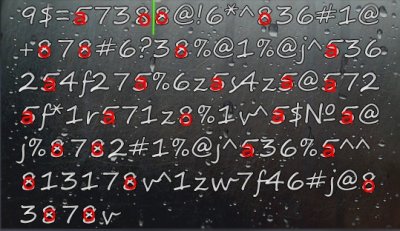 9$=57388@!6*^836#1@
+878#6?38%@1%@j^536
254f275%6z5s4z5@572
5f*1r571z8%1v^5$№5@
j%8782#1%@j^536%5^^
813178v^1zw7f46#j@8
3878.v